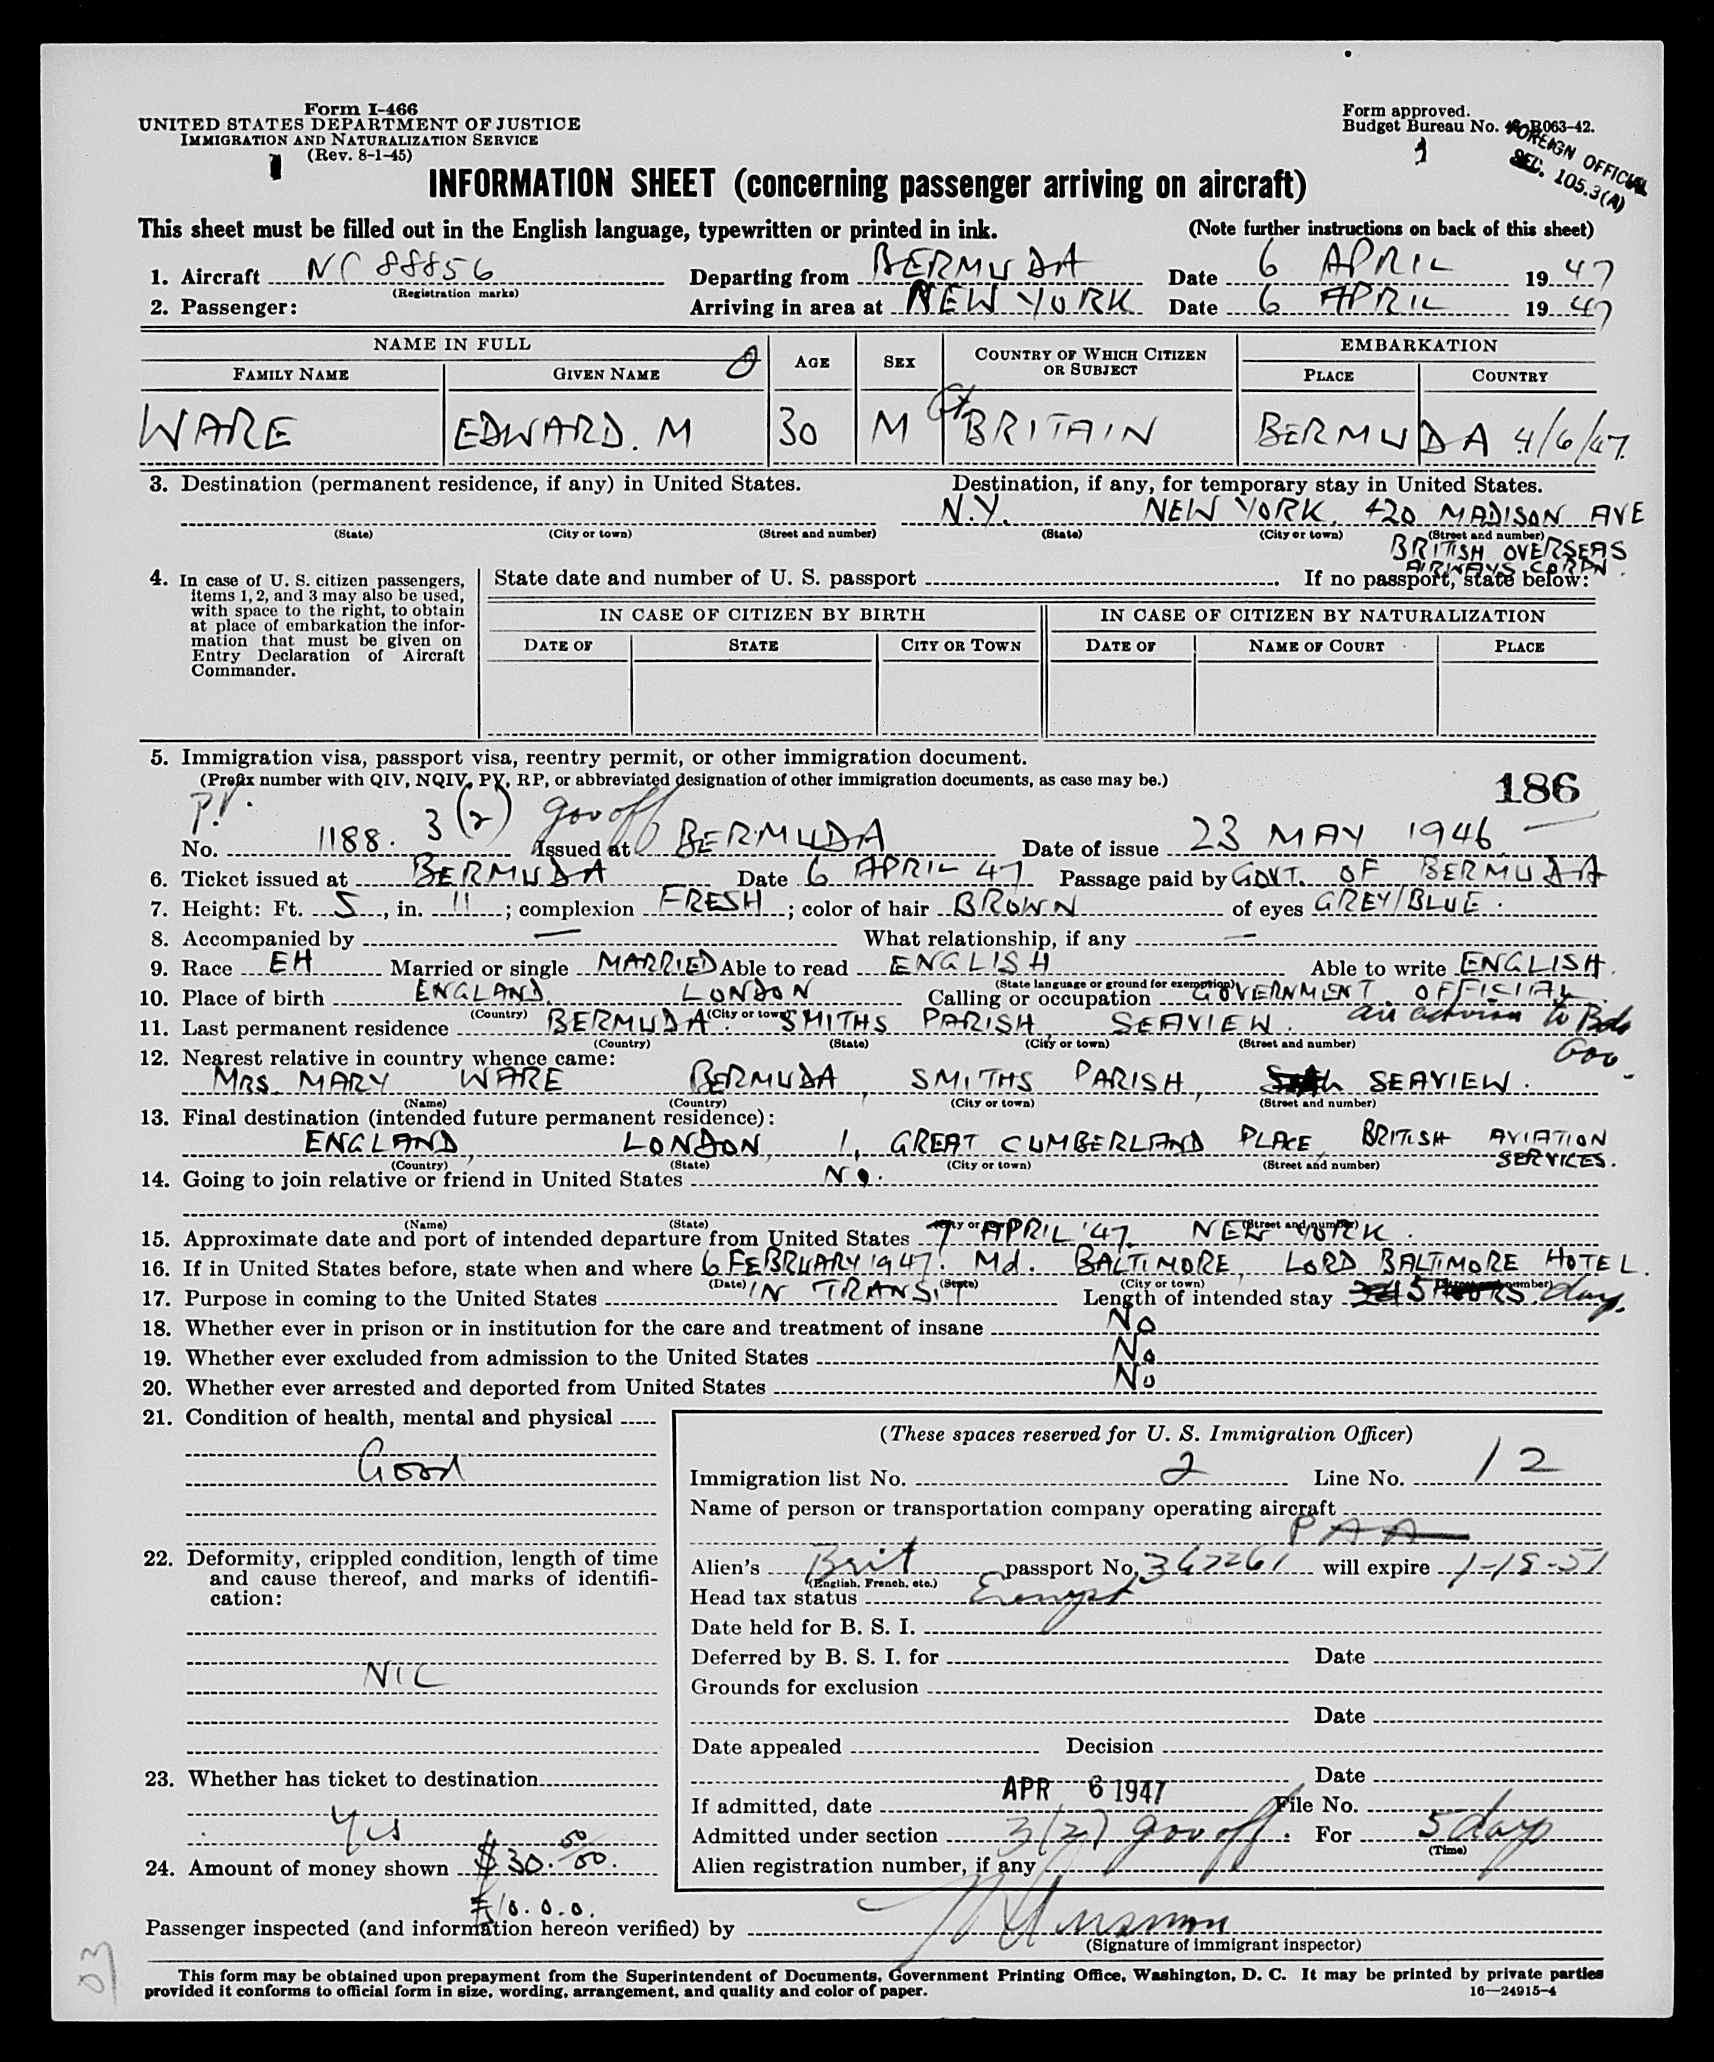 Form I-466
UNITED STATES DEPARTMENT OF JUSTICE
IMMIGRATION AND NATURALIZATION SERVICE
(Rev. 8-1-45)
Form approved.
Budget Bureau No. R063-42.
FOREIGN OFFICIAL
SEC. 105.3(A)
INFORMATION SHEET (concerning passenger arriving on aircraft)
This sheet must be filled out in the English language, typewritten or printed in ink. (Note further instructions on back of this sheet)
1. Aircraft NC 88856 Departing from BERMUDA Date 6 APRIL 1947
(Registration marks)
2. Passenger: Arriving in area at NEW YORK Date 6 APRIL 1947
NAME IN FULL AGE SEX COUNTRY OF WHICH CITIZEN OR SUBJECT EMBARKATION
FAMILY NAME GIVEN NAME PLACE COUNTRY
WARE EDWARD. M 30 M Gt BRITAIN BERMUDA 4/6/47.
3. Destination (permanent residence, if any) in United States. Destination, if any, for temporary stay in United States.
N.Y. NEW YORK. 420 MADISON AVE
(State) (City or town) (Street and number) (State) (City or town) (Street and number)
BRITISH OVERSEAS
AIRWAYS CORPN.
4. In case of U. S. citizen passengers, items 1, 2, and 3 may also be used, with space to the right, to obtain at place of embarkation the information that must be given on Entry Declaration of Aircraft Commander.
State date and number of U. S. passport If no passport, state below:
IN CASE OF CITIZEN BY BIRTH IN CASE OF CITIZEN BY NATURALIZATION
DATE OF STATE CITY OR TOWN DATE OF NAME OF COURT PLACE
5. Immigration visa, passport visa, reentry permit, or other immigration document.
(Prefix number with QIV, NQIV, PV, RP, or abbreviated designation of other immigration documents, as case may be.)
186
P.V. 3(2) gov off
No. 1188. Issued at BERMUDA Date of issue 23 MAY 1946
6. Ticket issued at BERMUDA Date 6 APRIL 47 Passage paid by GOVT. OF BERMUDA
7. Height: Ft. 5, in. 11; complexion FRESH; color of hair BROWN of eyes GREY/BLUE.
8. Accompanied by — What relationship, if any —
9. Race EH Married or single MARRIED Able to read ENGLISH Able to write ENGLISH.
(State language or ground for exemption)
10. Place of birth ENGLAND, LONDON Calling or occupation GOVERNMENT OFFICIAL
(Country) (City or town)
Gov.
11. Last permanent residence BERMUDA. SMITHS PARISH, SEAVIEW.
(Country) (State) (City or town) (Street and number)
12. Nearest relative in country whence came:
MRS. MARY WARE BERMUDA, SMITHS PARISH, SEAVIEW.
(Name) (Country) (City or town) (Street and number)
13. Final destination (intended future permanent residence):
ENGLAND, LONDON, 1, GREAT CUMBERLAND PLACE, BRITISH AVIATION SERVICES.
(Country) (State) (City or town) (Street and number)
14. Going to join relative or friend in United States NO.
(Name) (State) (City or town) (Street and number)
15. Approximate date and port of intended departure from United States 7 APRIL '47. NEW YORK.
16. If in United States before, state when and where 6 FEBRUARY 1947. Md. BALTIMORE, LORD BALTIMORE HOTEL.
(Date) (State) (City or town) (Street and number)
17. Purpose in coming to the United States IN TRANSIT Length of intended stay 5 days.
18. Whether ever in prison or in institution for the care and treatment of insane No
19. Whether ever excluded from admission to the United States No
20. Whether ever arrested and deported from United States No
21. Condition of health, mental and physical
Good
22. Deformity, crippled condition, length of time and cause thereof, and marks of identification:
NIL
23. Whether has ticket to destination
Yes
24. Amount of money shown $30. 50/00.
£10. 0. 0.
(These spaces reserved for U. S. Immigration Officer)
Immigration list No. 2 Line No. 12
Name of person or transportation company operating aircraft
PAA
Alien's Brit passport No. 367261 will expire 1-18-51
(English, French, etc.)
Head tax status Exempt
Date held for B. S. I.
Deferred by B. S. I. for Date
Grounds for exclusion
Date
Date appealed Decision
Date
If admitted, date APR 6 1947 File No.
Admitted under section 3(2) gov off. For 5 days
(Time)
Alien registration number, if any
Passenger inspected (and information hereon verified) by
(Signature of immigrant inspector)
This form may be obtained upon prepayment from the Superintendent of Documents, Government Printing Office, Washington, D. C. It may be printed by private parties
provided it conforms to official form in size, wording, arrangement, and quality and color of paper. 16—24915-4
03